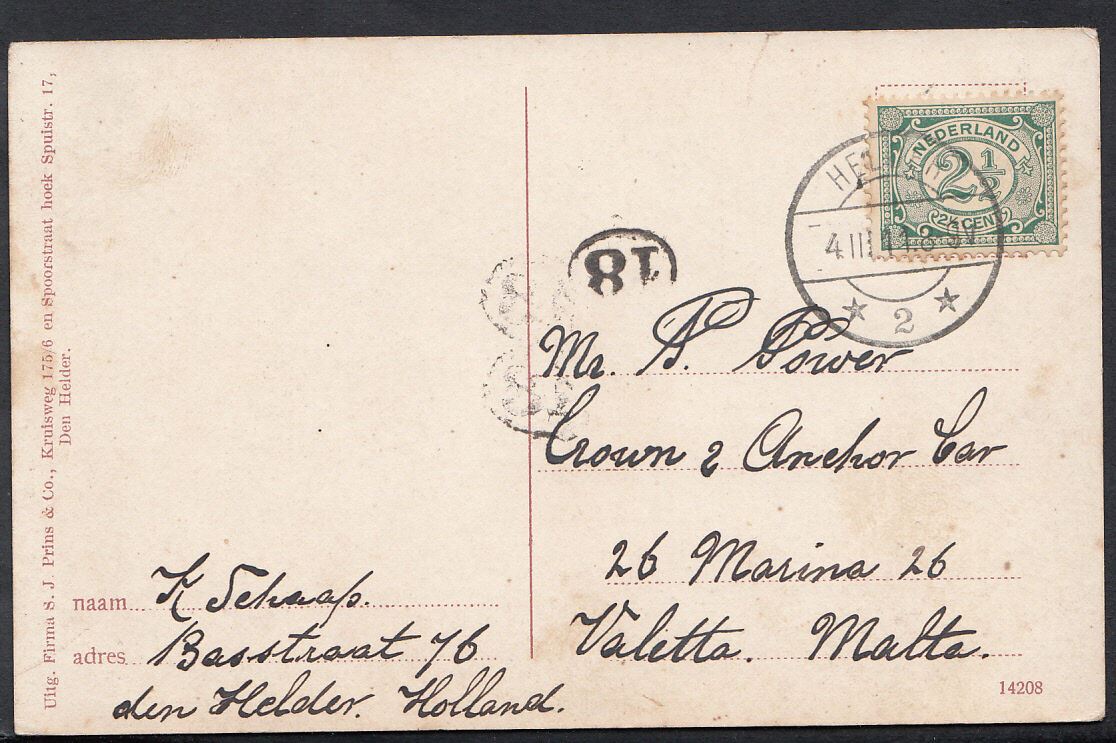 Uitg. Firma S. J. Prins & Co., Kruisweg 175/6 en Spoorstraat hoek Spuistr. 17,
Den Helder.
NEDERLAND
2 1/2
2½ CENT
4 III
2
18
18
Mr. P. Power
Crown & Anchor Bar
26 Marina 26
Valetta. Malta.
naam K Schaap.
adres Basstraat 76
den Helder. Holland.
14208